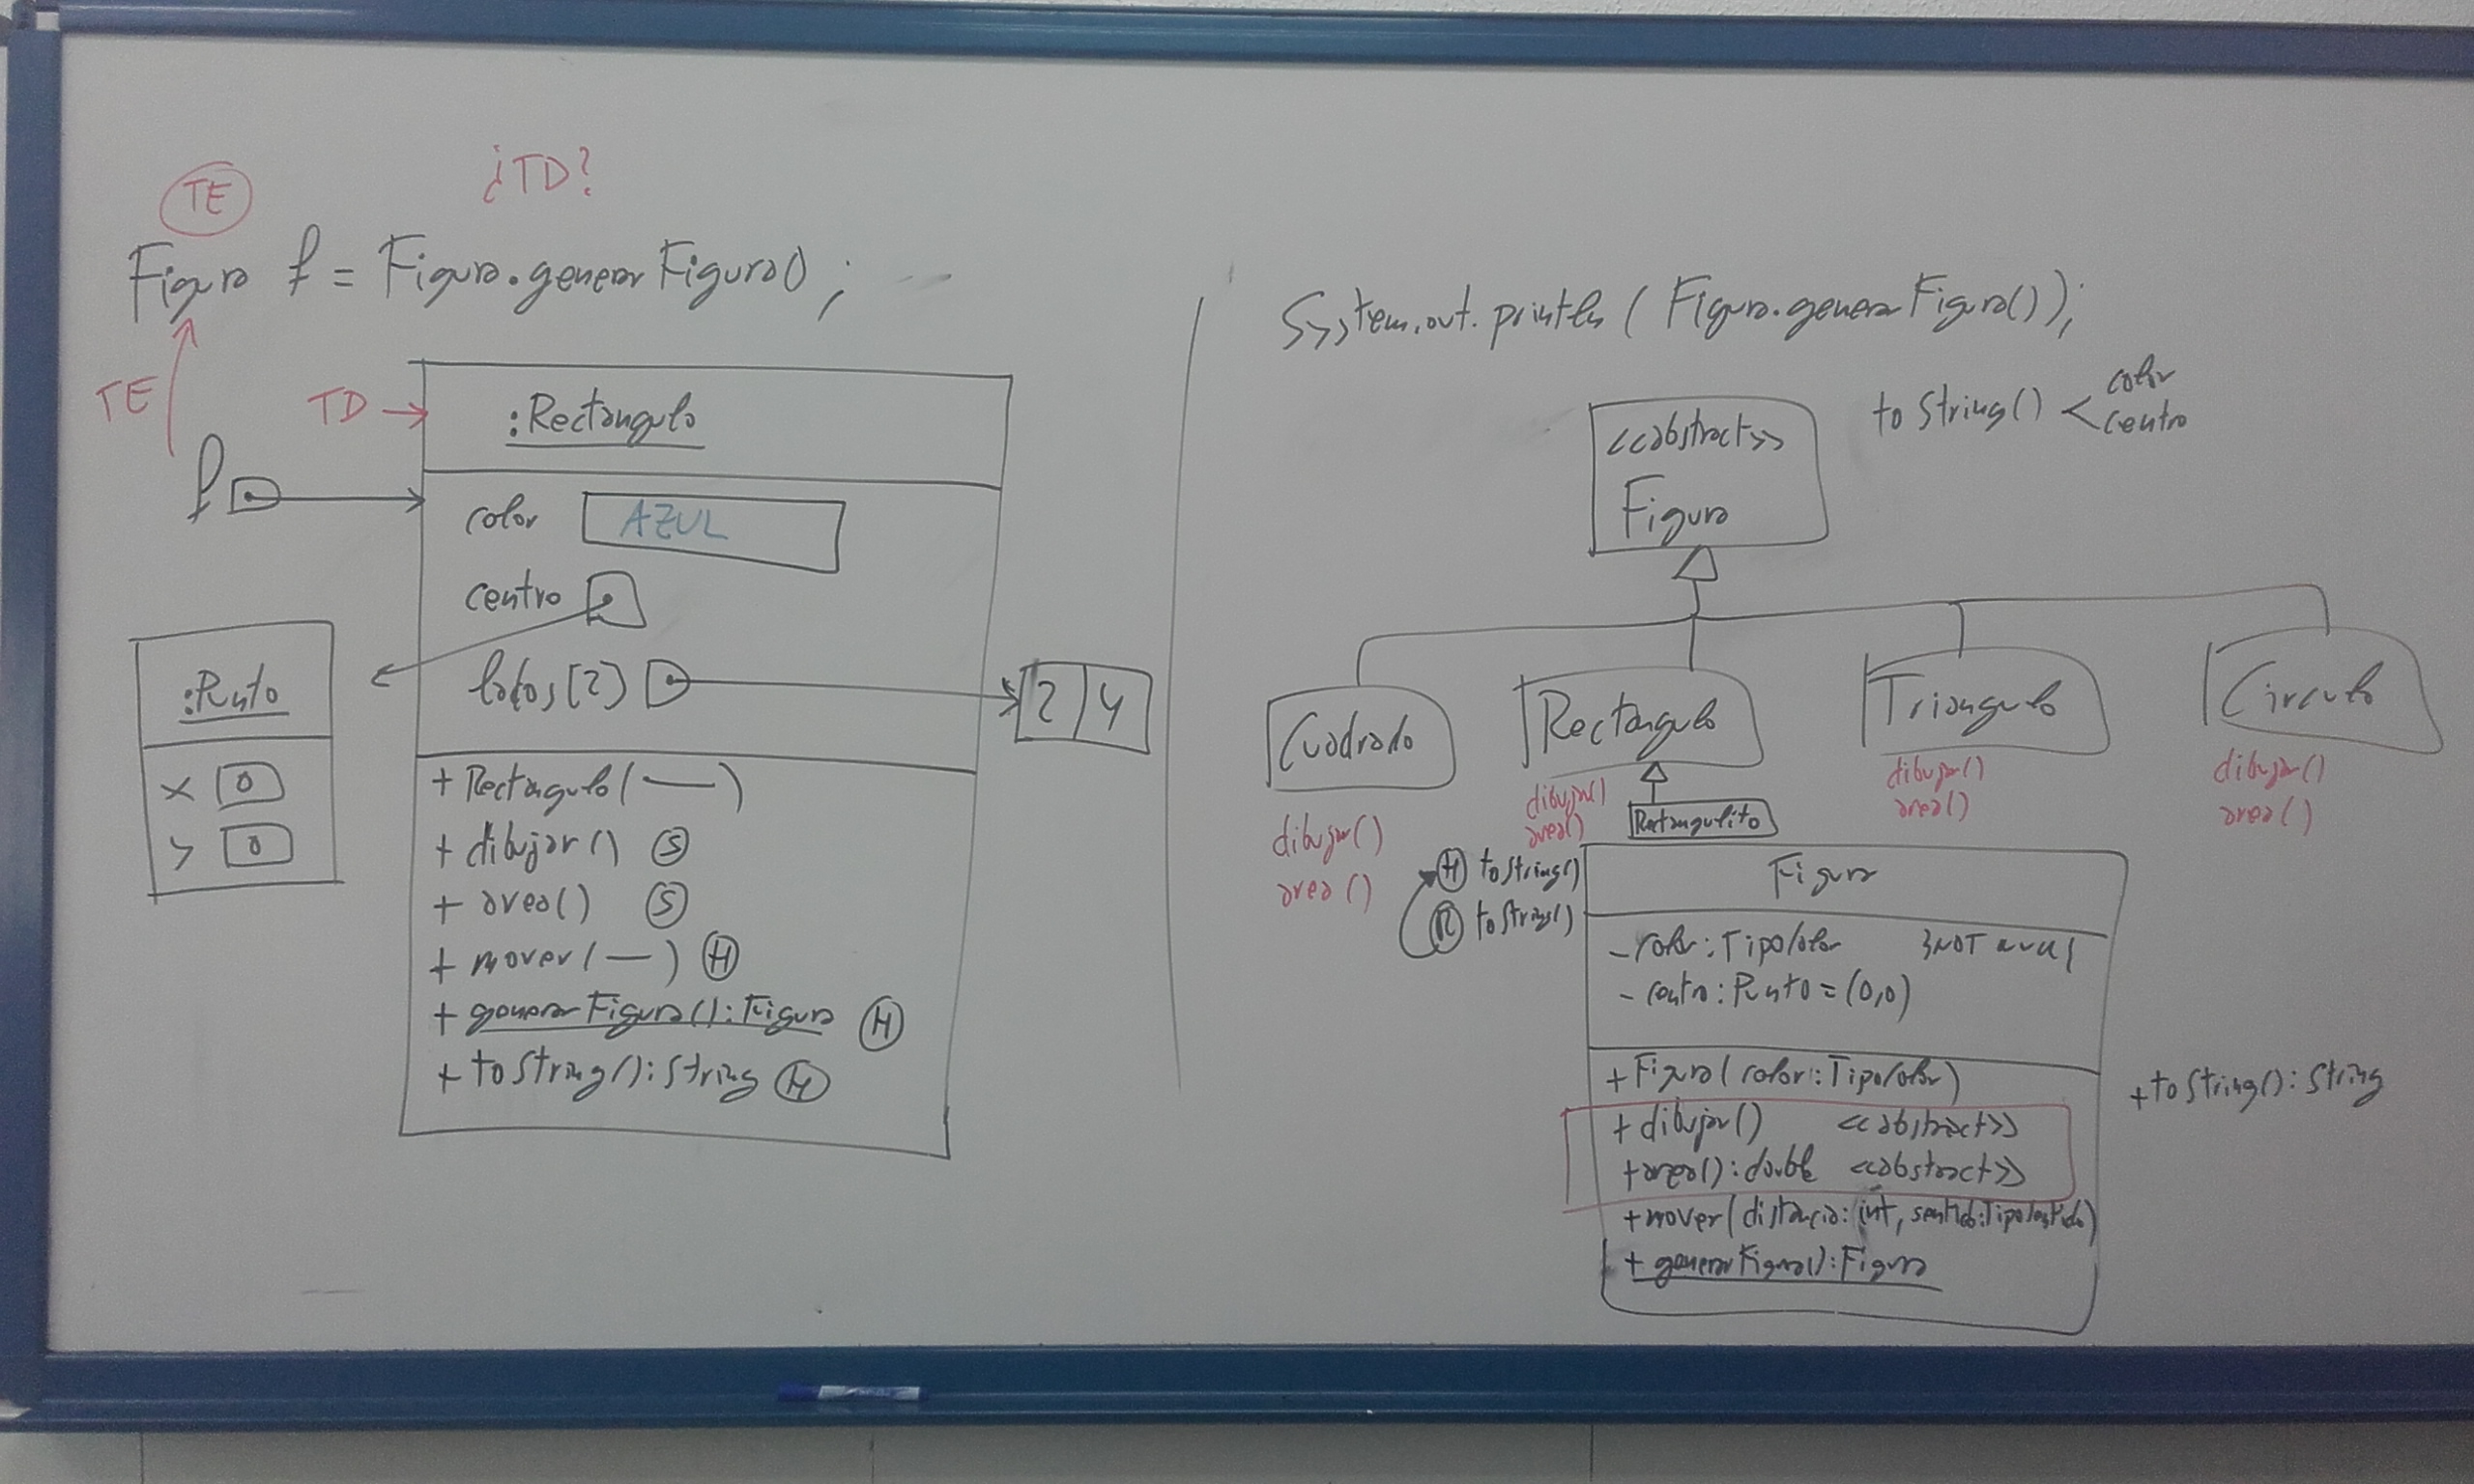 TE
¿TD?
Figura f = Figura.generarFigura();
TE
TD
:Rectangulo
f
color AZUL
centro
lados[2]
2 4
:Punto
x 0
y 0
+ Rectangulo(—)
+ dibujar() S
+ area() S
+ mover(—) H
+ generarFigura():Figura H
+ toString():String H
System.out.println(Figura.generarFigura());
<<abstract>>
Figura
toString() < color
centro
Cuadrado
Rectangulo
Triangulo
Circulo
dibujar()
area()
dibujar()
area()
dibujar()
area()
dibujar()
area()
Rectangulito
H toString()
R toString()
Figura
- color:TipoColor
- centro:Punto=(0,0)
+Figura(color:TipoColor)
+dibujar() <<abstract>>
+area():double <<abstract>>
+mover(distancia:int, sentido:
+ generarFigura():Figura
+toString():String